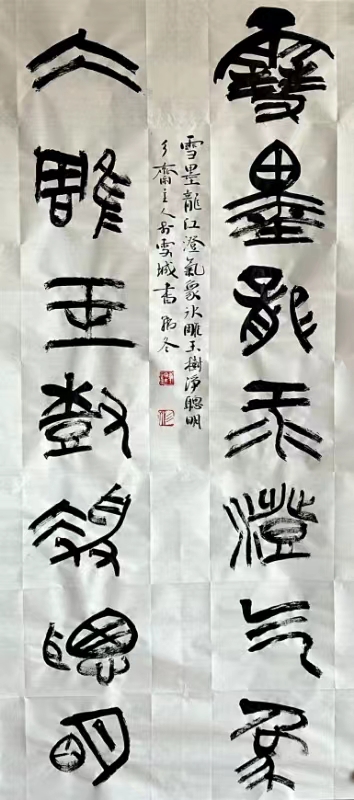 雪墨龍江澄气象
冰雕玉樹淨聰明
雪墨龍江澄氣象冰雕玉樹淨聰明
齋主人於雪城書冬